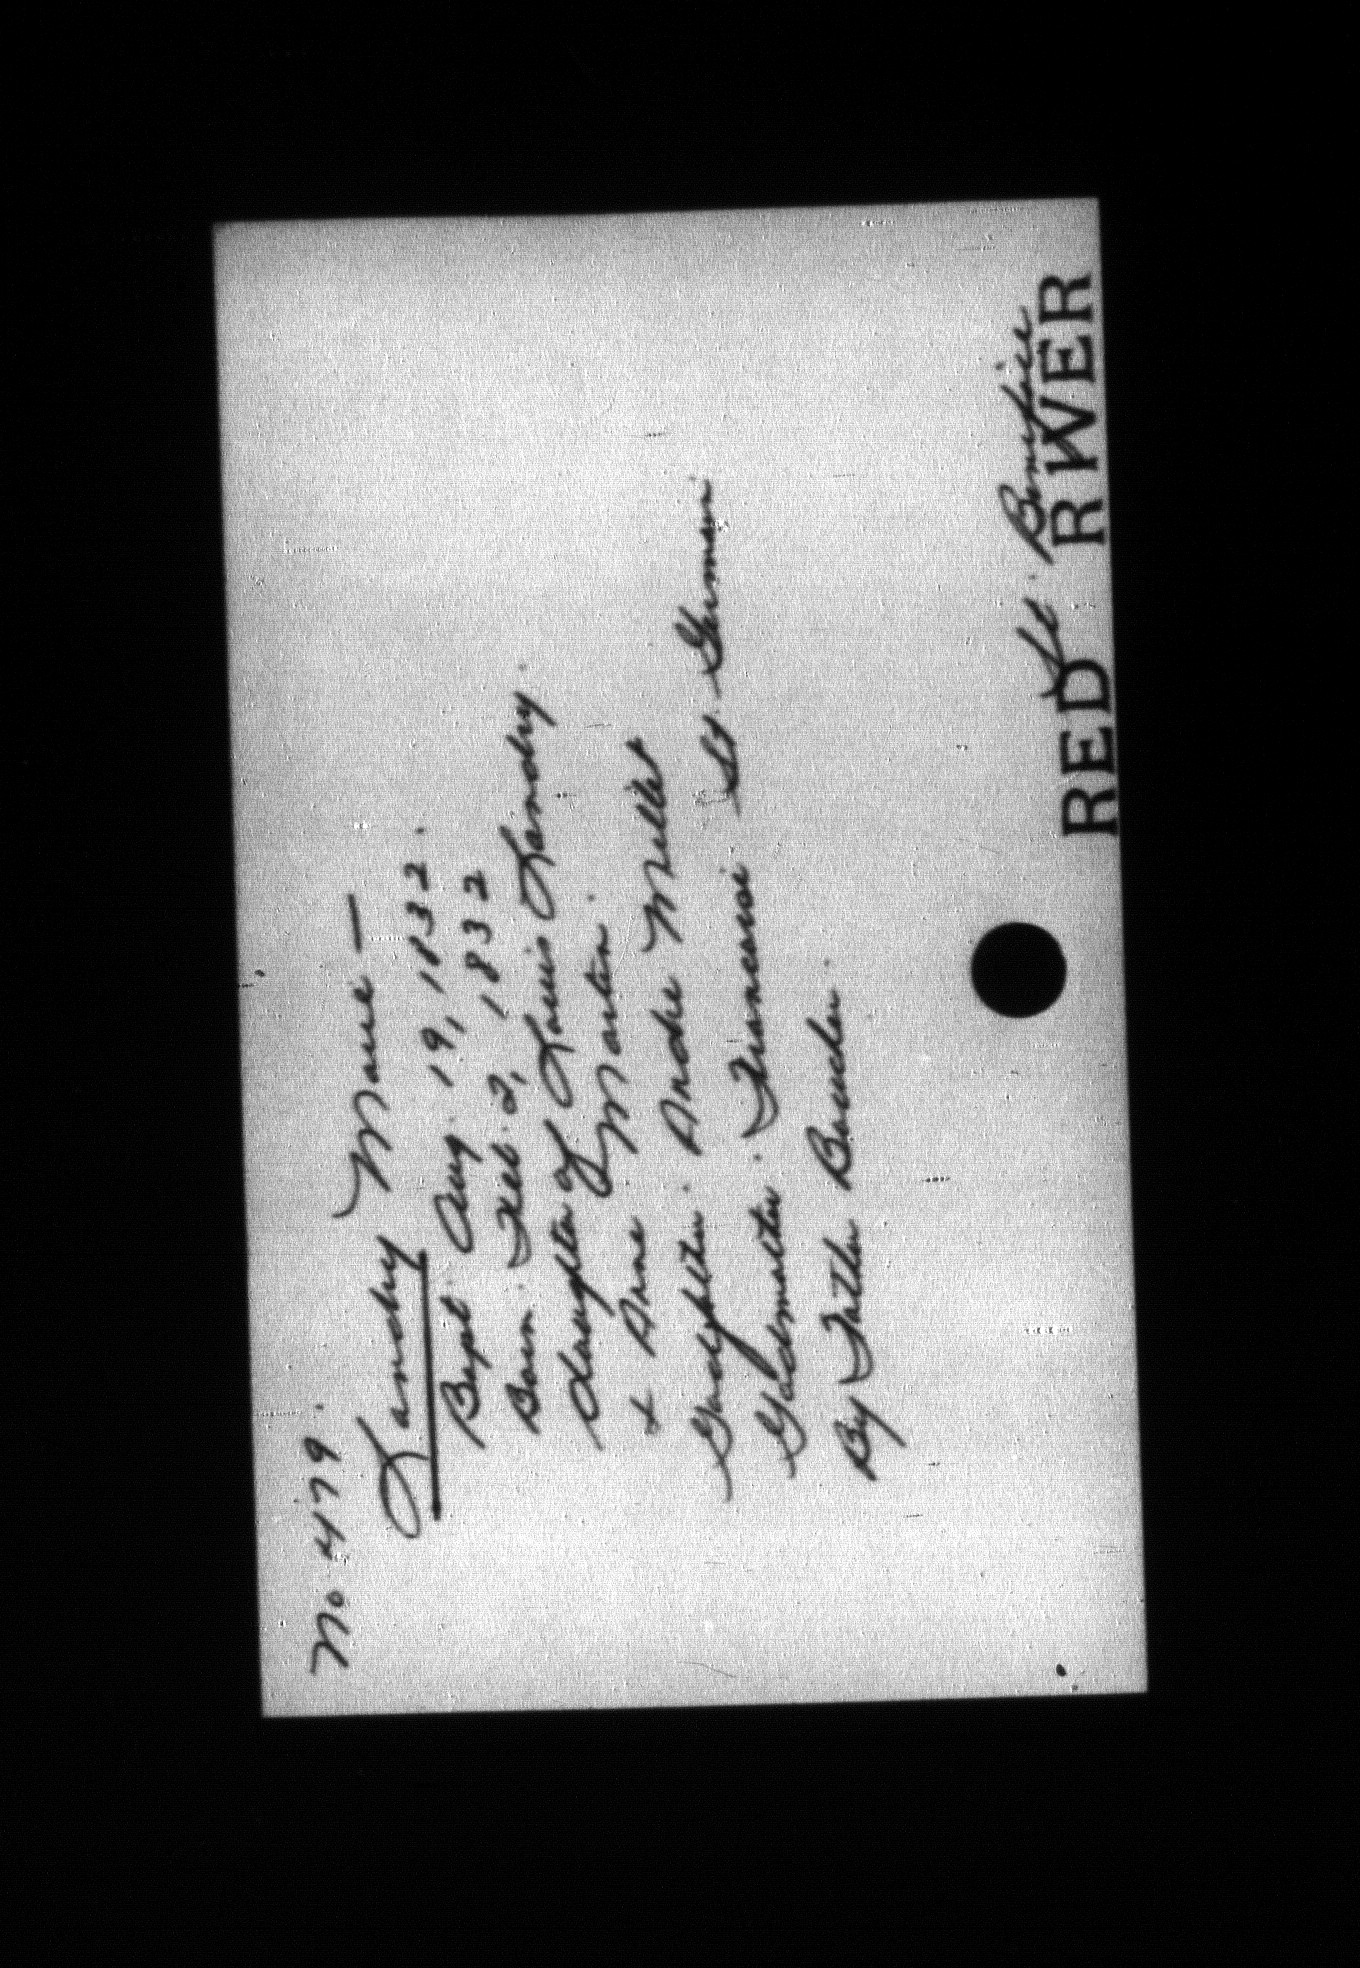 No 479.
Landry Marie —
Bapt. Aug. 19, 1832.
Born. Feb. 2, 1832
daughter of Louis Landry.
& Anne Martin.
Godfather. Andre Millet
Godmother. Francoise St. Germain
By Father Boucher.
St. Boniface
RED RIVER